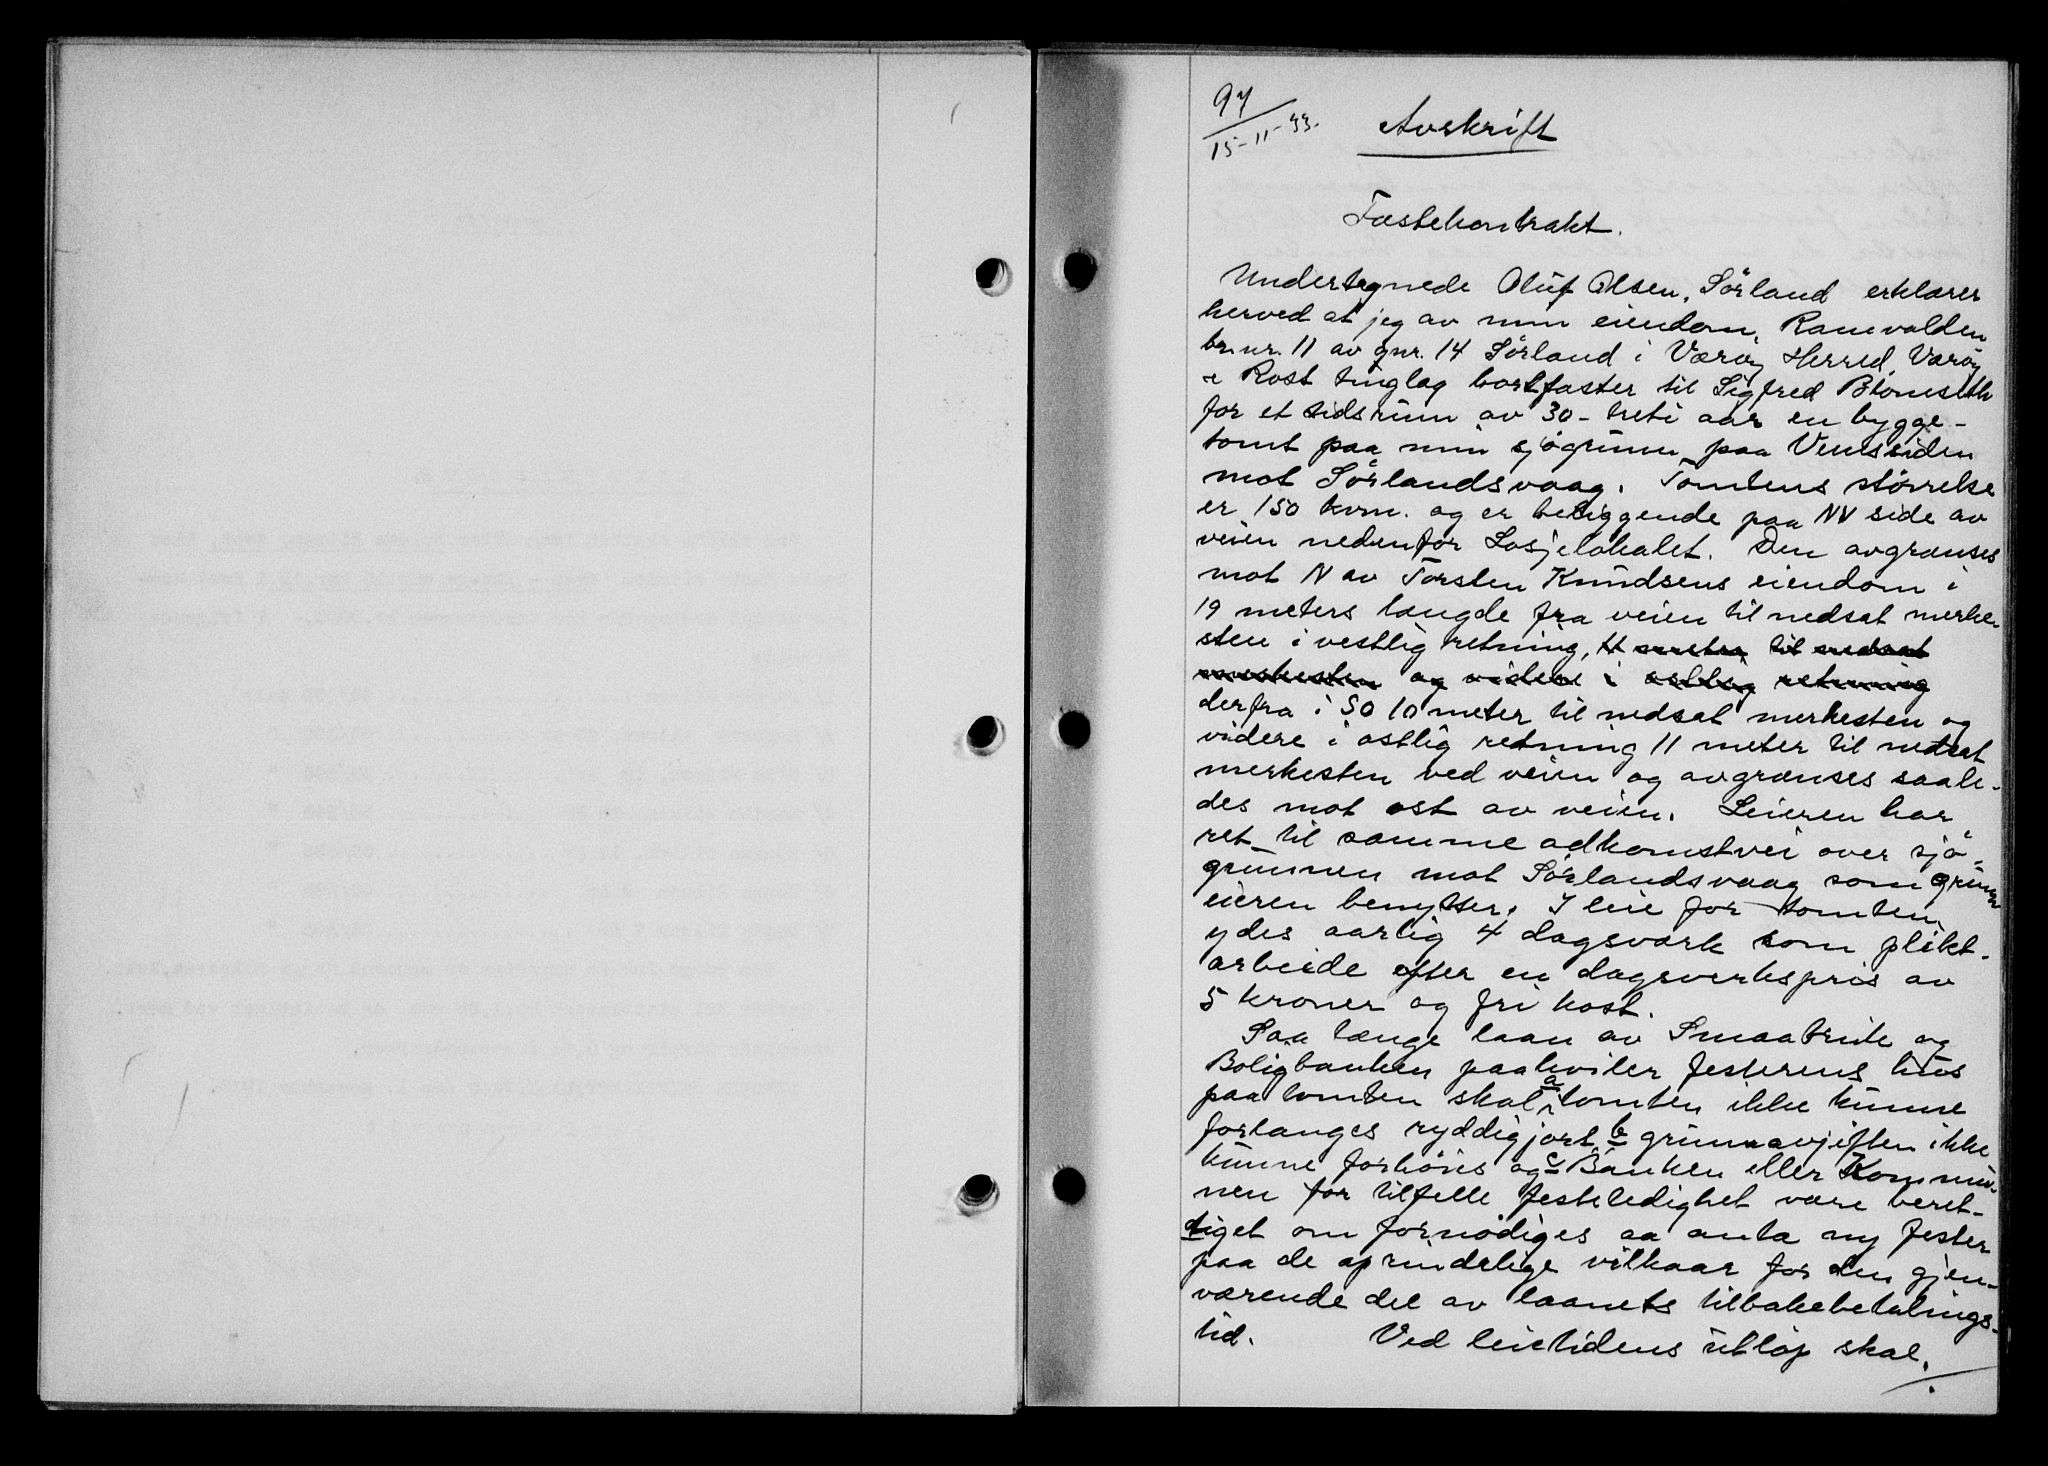 97
15-11-33.
Avskrift
Fæstekontrakt.
Undertegnede Oluf Olsen, Sörland erklærer
herved at jeg av min eiendom,
br.nr. 11 av gnr. 14 Sörland i Værøy Herred, Værøy
& Røst tinglag bortfæster til Sigfred Blomseth
for et tidsrum av 30 - treti aar en bygge-
tomt paa min sjögrunn paa
mot Sörlandsvaag. Tomtens størrelse
er 150 kvm. og er beliggende paa NV side av
veien nedenfor Losjelokalet. Den avgrænses
mot N av Torsten Knudsens eiendom i
19 meters længde fra veien til nedsat merke-
sten i vestlig retning, 11 meter til nedsat
merkesten og videre i østlig retning
derfra i SO 10 meter til nedsat merkesten og
videre i østlig retning 11 meter til nedsat
merkesten ved veien og avgrænses saale-
des mot øst av veien. Leieren har
ret til samme adkomstvei over sjö-
grunnen mot Sörlandsvaag som grunn
eieren benytter. I leie for tomten
ydes aarlig 4 dagsverk som plikt-
arbeide efter en dagsverkspris av
5 kroner og fri kost.
Saa længe laan av Smaabruk og
Boligbanken paahviler festerens hus
paa tomten skal a tomten ikke kunne
forlanges ryddiggjort b grunnavgiften ikke
kunne forhöies og c Banken eller Kommu-
nen for tilfelle festeledighet være beret-
tiget om fornødiges aa anta ny fester
paa de oprindelige vilkaar for den gjen-
værende del av laanets tilbakebetalings-
tid. Ved leietidens utløp skal.